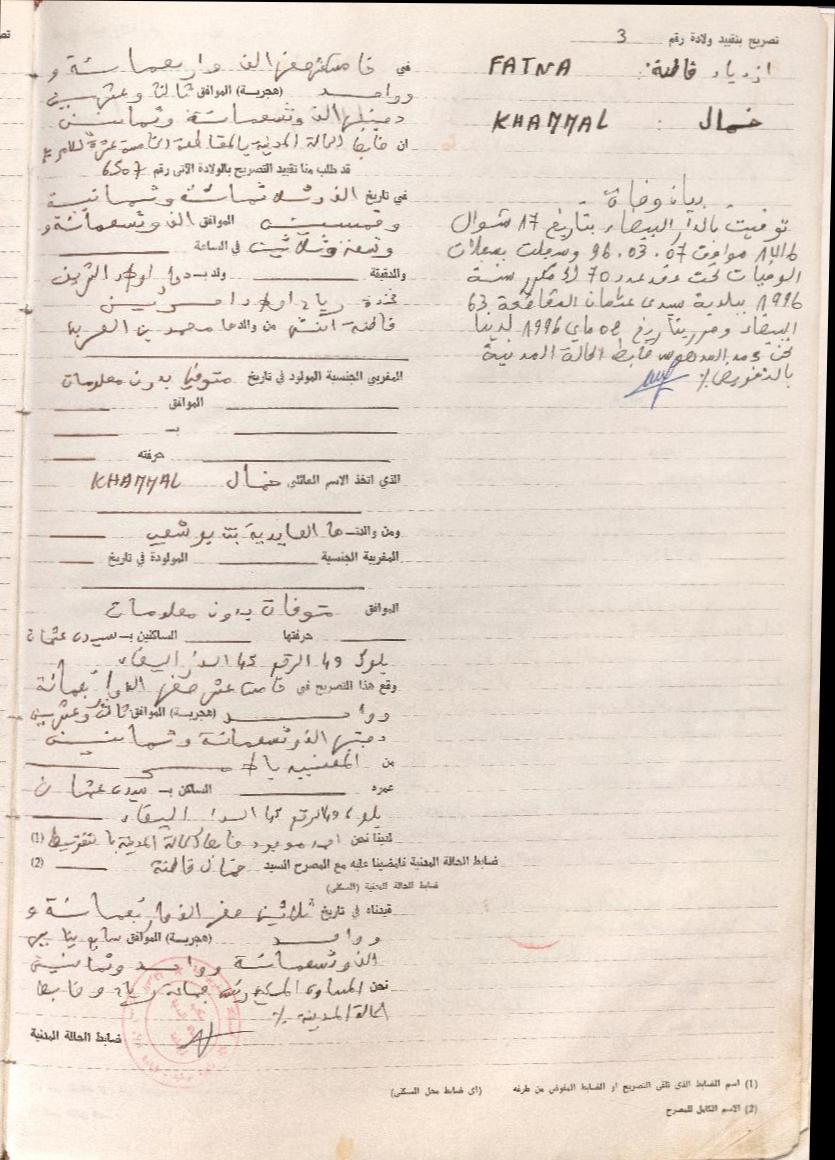 تصريح بتقييد ولادة رقم 3
ازدياد فاطنة: FATNA
خمال : KHAMMAL
بيان وفاة
توفيت بالدار البيضاء بتاريخ 17 شوال
1416 موافق 07.03.96 وسجلت بسجلات
الوفيات تحت عدد 70 مكرر سنة
1996 ببلدية سيدي عثمان المقاطعة 63
البيضاء وحرر بتاريخ 08 ماي 1996 لدينا
نحن ضابط الحالة المدنية
بالتفويض٪
في خامس عشر صفر الف واربعمائة و
وواحد (هجرية) الموافق ثالث وعشرين
دجنبر الف وتسعمائة وثمانين
ان ضابط الحالة المدنية بالمقاطعة الخامسة عشرة
قد طلب منا تقييد التصريح بالولادة الآتى رقم 6507
في تاريخ الف وثلاثمائة وثمانية
وخمسين الموافق الف وتسعمائة و
وتسعة وثلاثين في الساعة
والدقيقة ولد بـ دوار اولاد
فاطنة انثى من والدها محمد بن العربي
المغربي الجنسية المولود في تاريخ متوفيا بدون معلومات
الموافق
بـ
حرفته
الذي اتخذ الاسم العائلي خمال KHAMMAL
ومن والدتـها العايدية بنت بوشعيب
المغربية الجنسية المولودة في تاريخ
الموافق متوفات بدون معلومات
حرفتها الساكنين بـ سيدي عثمان
بلوك 49 الرقم 45 الدار البيضاء
وقع هذا التصريح في خامس عشر صفر الف واربعمائة
وواحد (هجرية) الموافق ثالث وعشرين
دجنبر الف وتسعمائة وثمانين
من المعنية بالامر
عمره الساكن بـ سيدي عثمان
بلوك 49 الرقم 45 الدار البيضاء
لدينا نحن ضابط الحالة المدنية بالتفويض (1)
ضابط الحالة المدنية فامضينا عليه مع المصرح السيد خمال فاطنة (2)
ضابط الحالة المدنية (السكنى)
قيدناه في تاريخ ثلاثين صفر الف واربعمائة و
وواحد (هجرية) الموافق سابع يناير
الف وتسعمائة وواحد وثمانين
نحن رئيس جماعة وضابط
الحالة المدنية ٪
ضابط الحالة المدنية
(1) اسم الضابط الذي تلقى التصريح او الضابط المفوض من طرفه (أي ضابط محل السكنى)
(2) الاسم الكامل للمصرح